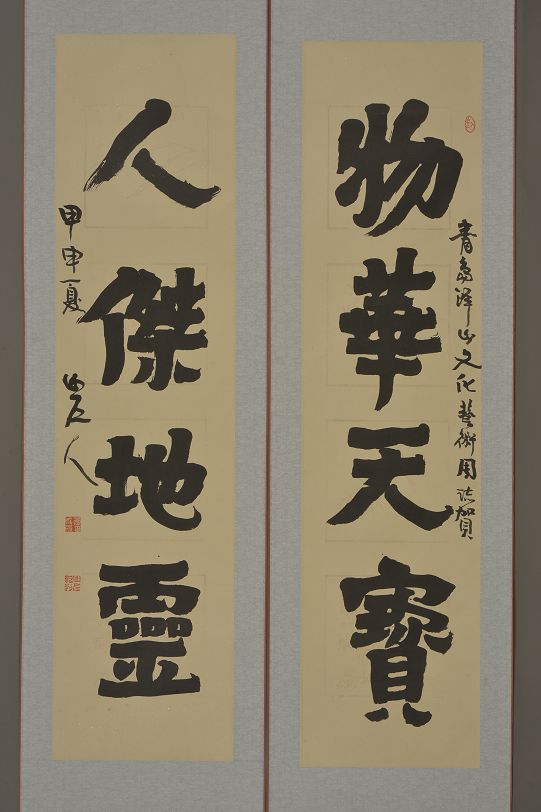 物華天寶
青島澤山文化藝術周誌賀
人傑地靈
甲申夏
山石人